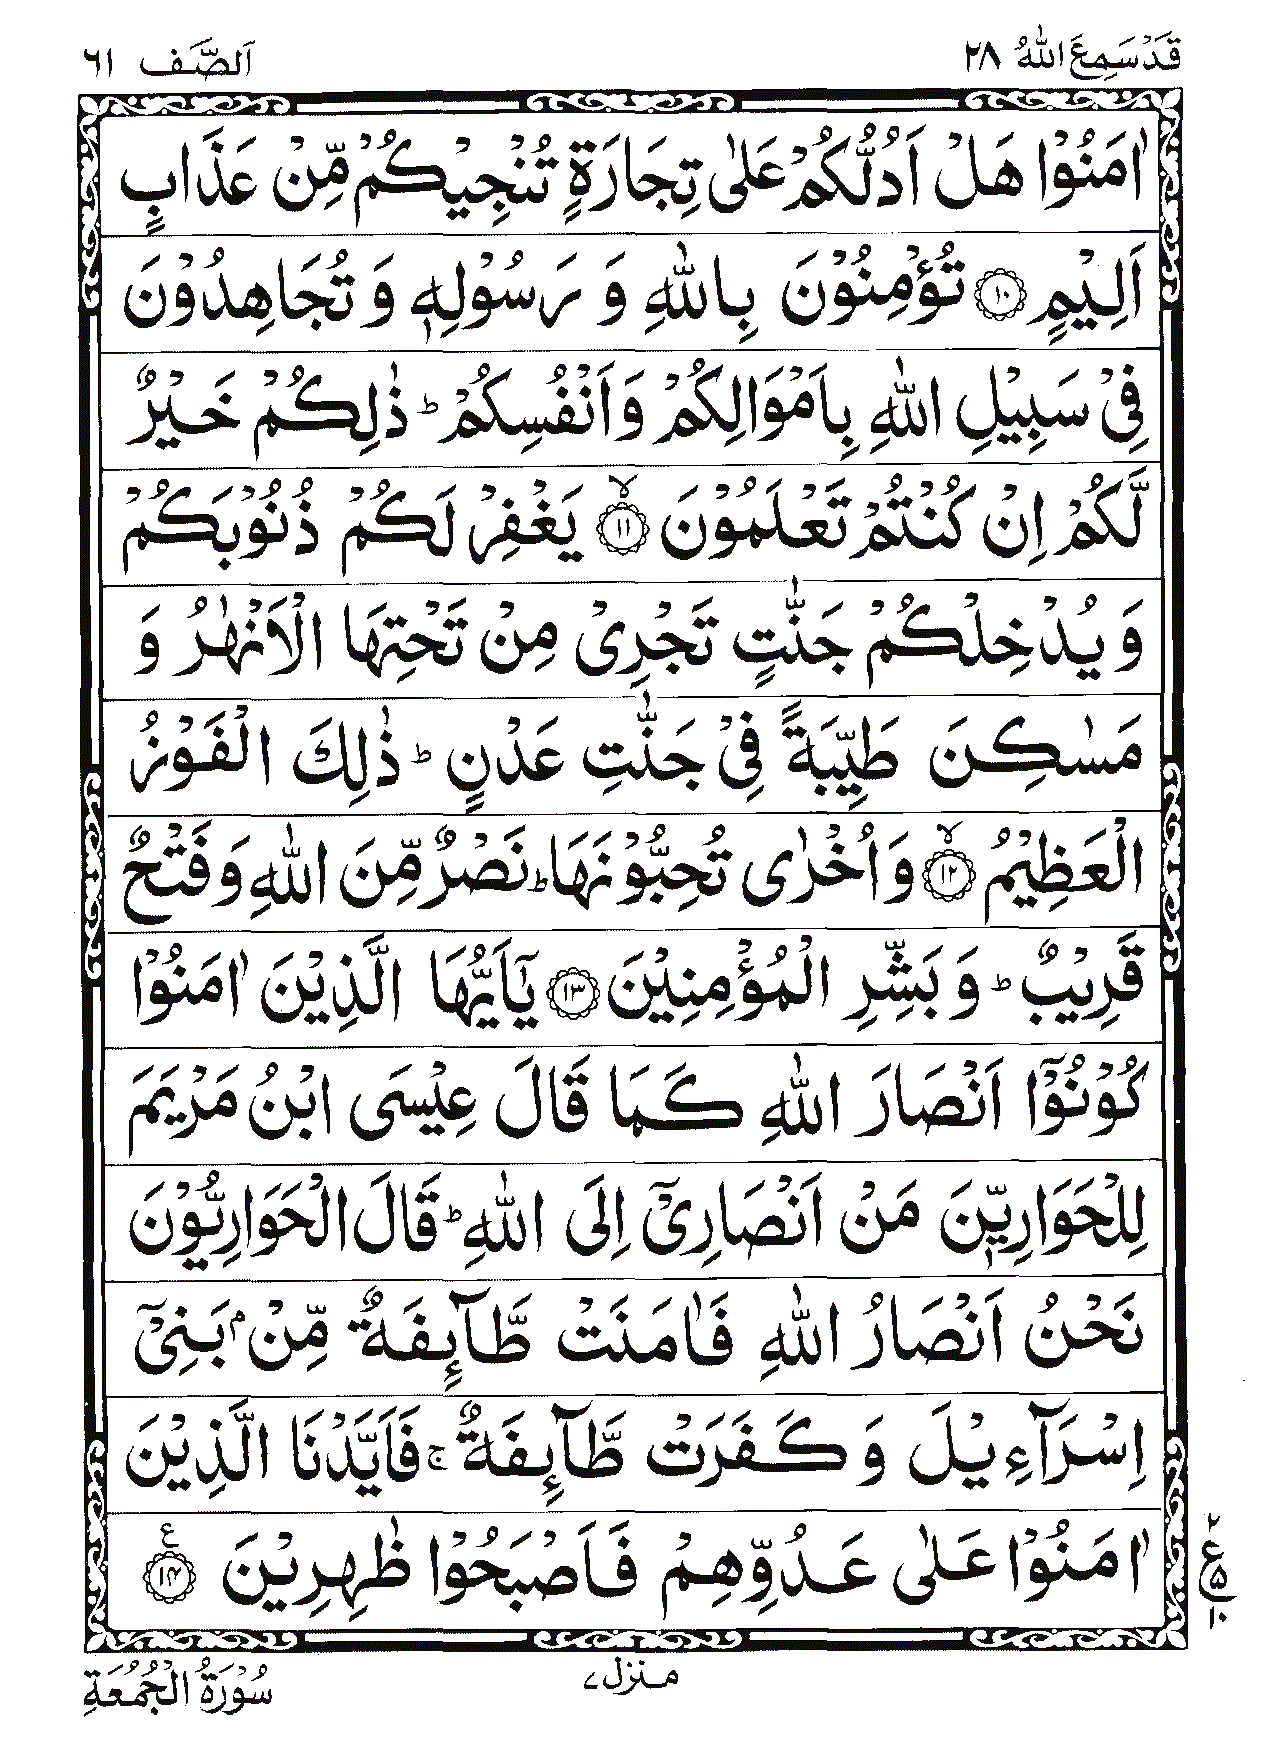 قَدْ سَمِعَ اللّٰهُ ٢٨
اَلصَّف ٦١
اٰمَنُوْا هَلْ اَدُلُّكُمْ عَلٰى تِجَارَةٍ تُنْجِيْكُمْ مِّنْ عَذَابٍ
اَلِيْمٍ ۝١٠ تُؤْمِنُوْنَ بِاللّٰهِ وَ رَسُوْلِهٖ وَ تُجَاهِدُوْنَ
فِيْ سَبِيْلِ اللّٰهِ بِاَمْوَالِكُمْ وَاَنْفُسِكُمْ ؕ ذٰلِكُمْ خَيْرٌ
لَّكُمْ اِنْ كُنْتُمْ تَعْلَمُوْنَ ۝١١ۙ يَغْفِرْ لَكُمْ ذُنُوْبَكُمْ
وَ يُدْخِلْكُمْ جَنّٰتٍ تَجْرِيْ مِنْ تَحْتِهَا الْاَنْهٰرُ وَ
مَسٰكِنَ طَيِّبَةً فِيْ جَنّٰتِ عَدْنٍ ؕ ذٰلِكَ الْفَوْزُ
الْعَظِيْمُ ۝١٢ۙ وَاُخْرٰى تُحِبُّوْنَهَا ؕ نَصْرٌ مِّنَ اللّٰهِ وَفَتْحٌ
قَرِيْبٌ ؕ وَ بَشِّرِ الْمُؤْمِنِيْنَ ۝١٣ يٰٓاَيُّهَا الَّذِيْنَ اٰمَنُوْا
كُوْنُوْٓا اَنْصَارَ اللّٰهِ كَمَا قَالَ عِيْسَى ابْنُ مَرْيَمَ
لِلْحَوَارِيّٖنَ مَنْ اَنْصَارِيْٓ اِلَى اللّٰهِ ؕ قَالَ الْحَوَارِيُّوْنَ
نَحْنُ اَنْصَارُ اللّٰهِ فَاٰمَنَتْ طَّآئِفَةٌ مِّنْۢ بَنِيْٓ
اِسْرَآءِيْلَ وَ كَفَرَتْ طَّآئِفَةٌ ۚ فَاَيَّدْنَا الَّذِيْنَ
اٰمَنُوْا عَلٰى عَدُوِّهِمْ فَاَصْبَحُوْا ظٰهِرِيْنَ ۝١٤ ع
٢
ع
٥
١٠
منزل ٧
سُوْرَةُ الْجُمُعَةِ